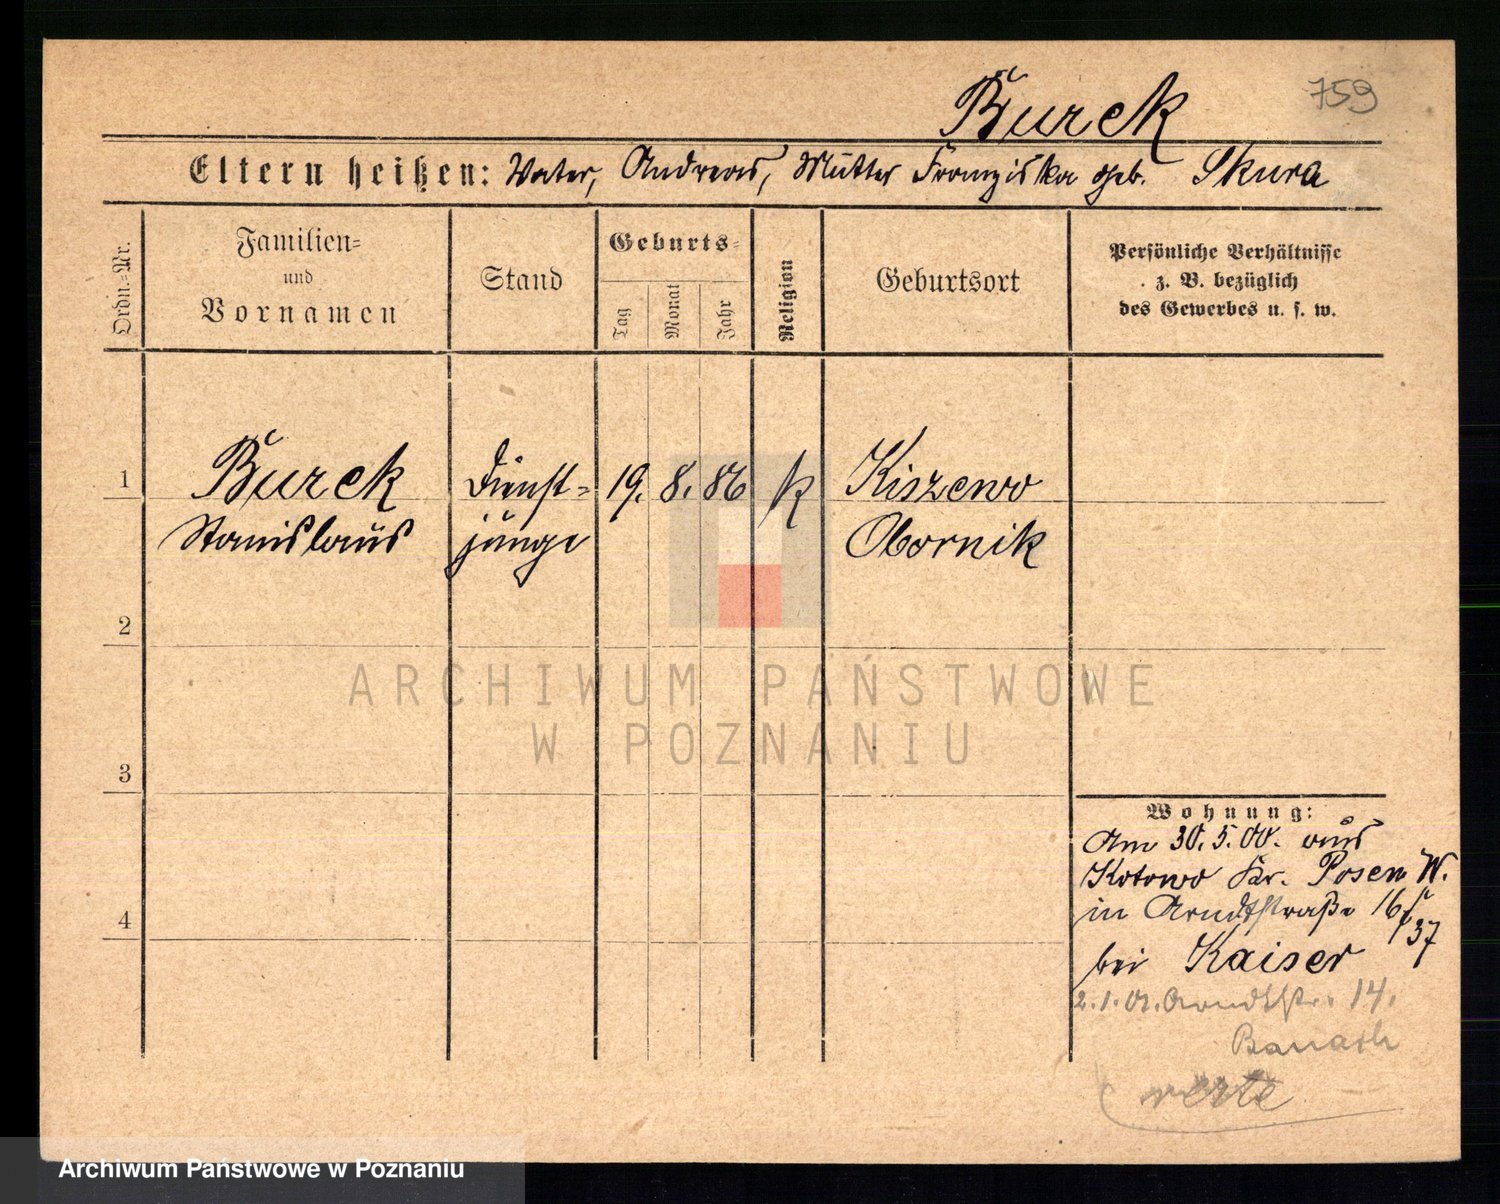 Burek 759
Eltern heißen: Vater, Andreas, Mutter Franziska geb. Skura
Ordn.=Nr.
Familien=
und
Vornamen
Stand
Geburts=
Tag
Monat
Jahr
Religion
Geburtsort
Persönliche Verhältnisse
z. B. bezüglich
des Gewerbes u. s. w.
1 Burek Dienst= 19. 8. 86 k Kiszewo
Stanislaus junge Obornik
2
ARCHIWUM PAŃSTWOWE
W POZNANIU
3
Wohnung:
Am 30.5.00. aus
Kotowo Kr. Posen W.
in Arndtstraße 16
4
37
bei Kaiser
2.1.01. Arndtstr. 14.
verte
Archiwum Państwowe w Poznaniu